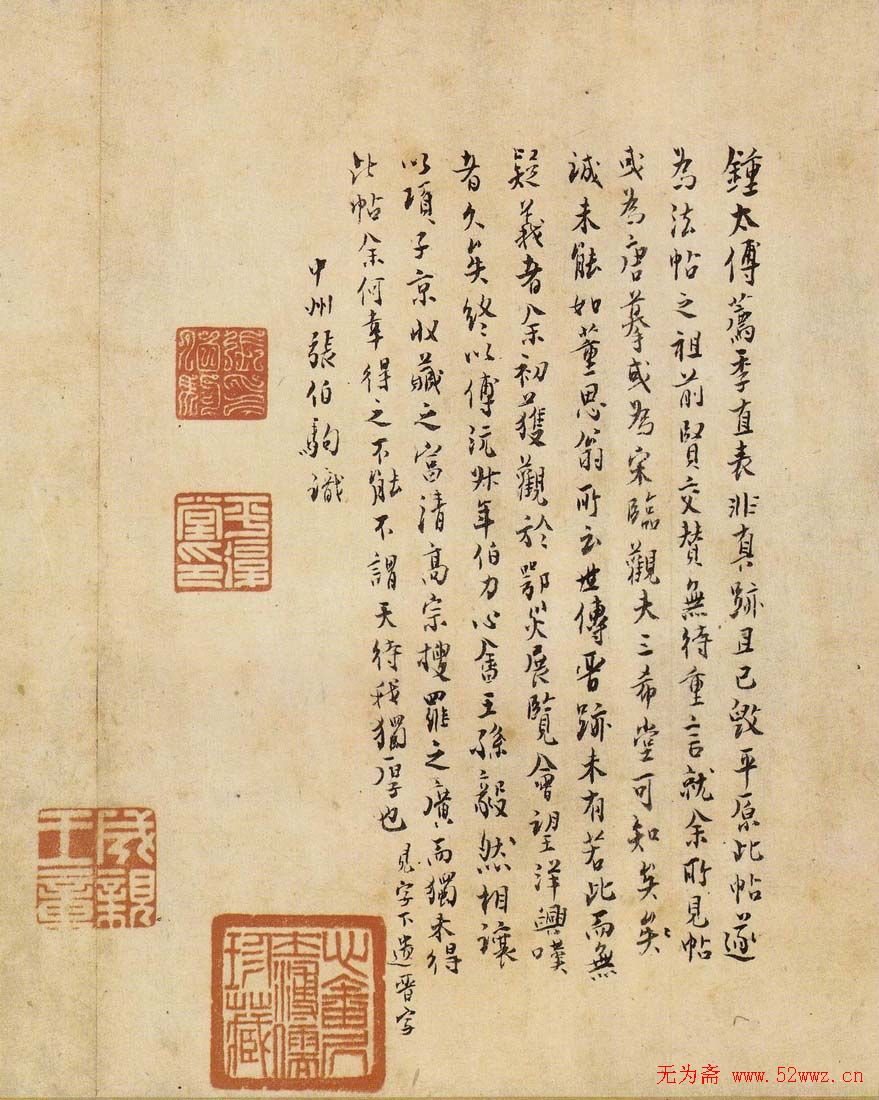 鍾太傅薦季直表非真跡且已毀平原此帖遂
為法帖之祖前賢交贊無待重言就余所見帖
或為唐摹或為宋臨觀夫三希堂可知矣矣
誠未能如董思翁所云世傳晉跡未有若此而無
疑義者余初獲觀於鄂災展覽會望洋興嘆
者久矣終以傅沅叔年伯力心畬王孫毅然相讓
以項子京收藏之富清高宗搜羅之廣而獨未得
此帖余何幸得之不能不謂天待我獨厚也
見字下遺晉字
中州張伯駒識
平復堂印
成親王章
溥儒
珍藏
无为斋 www.52wwz.cn